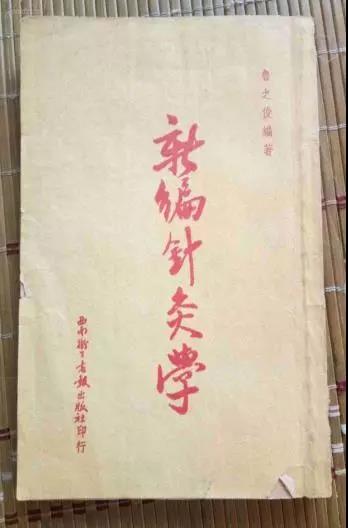 魯之俊編著
新編針灸學
西南衛生書報出版社印行